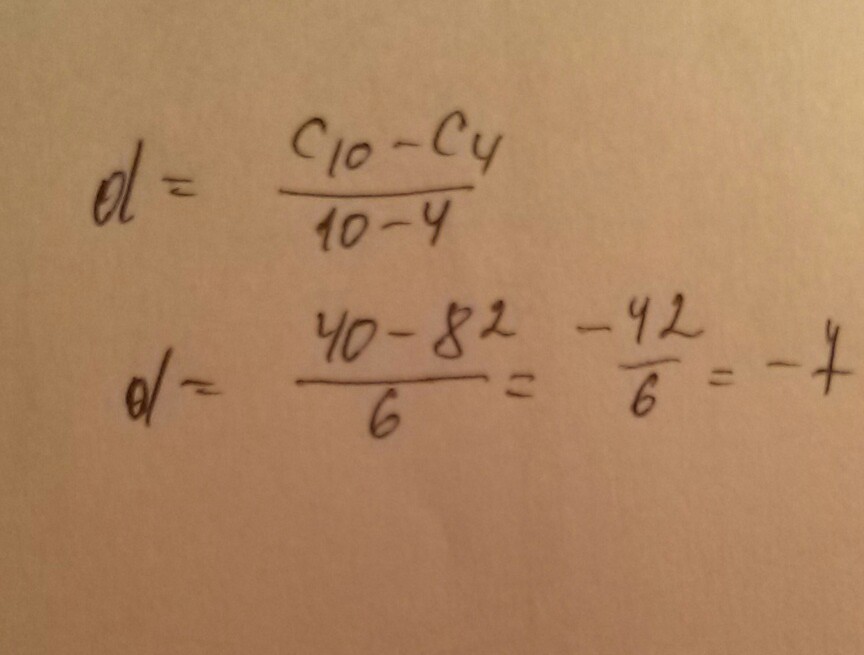 d = (C₁₀ - C₄) / (10 - 4)
d = (40 - 82) / 6 = -42 / 6 = -7